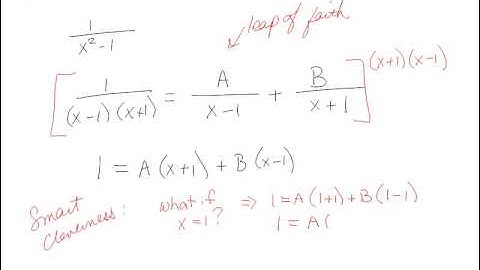 1
x²-1
leap of faith
[ 1/((x-1)(x+1)) = A/(x-1) + B/(x+1) ] (x+1)(x-1)
1 = A(x+1) + B(x-1)
Smart
cleverness:
what if
x=1?
⇒ 1=A(1+1)+B(1-1)
1 = A(